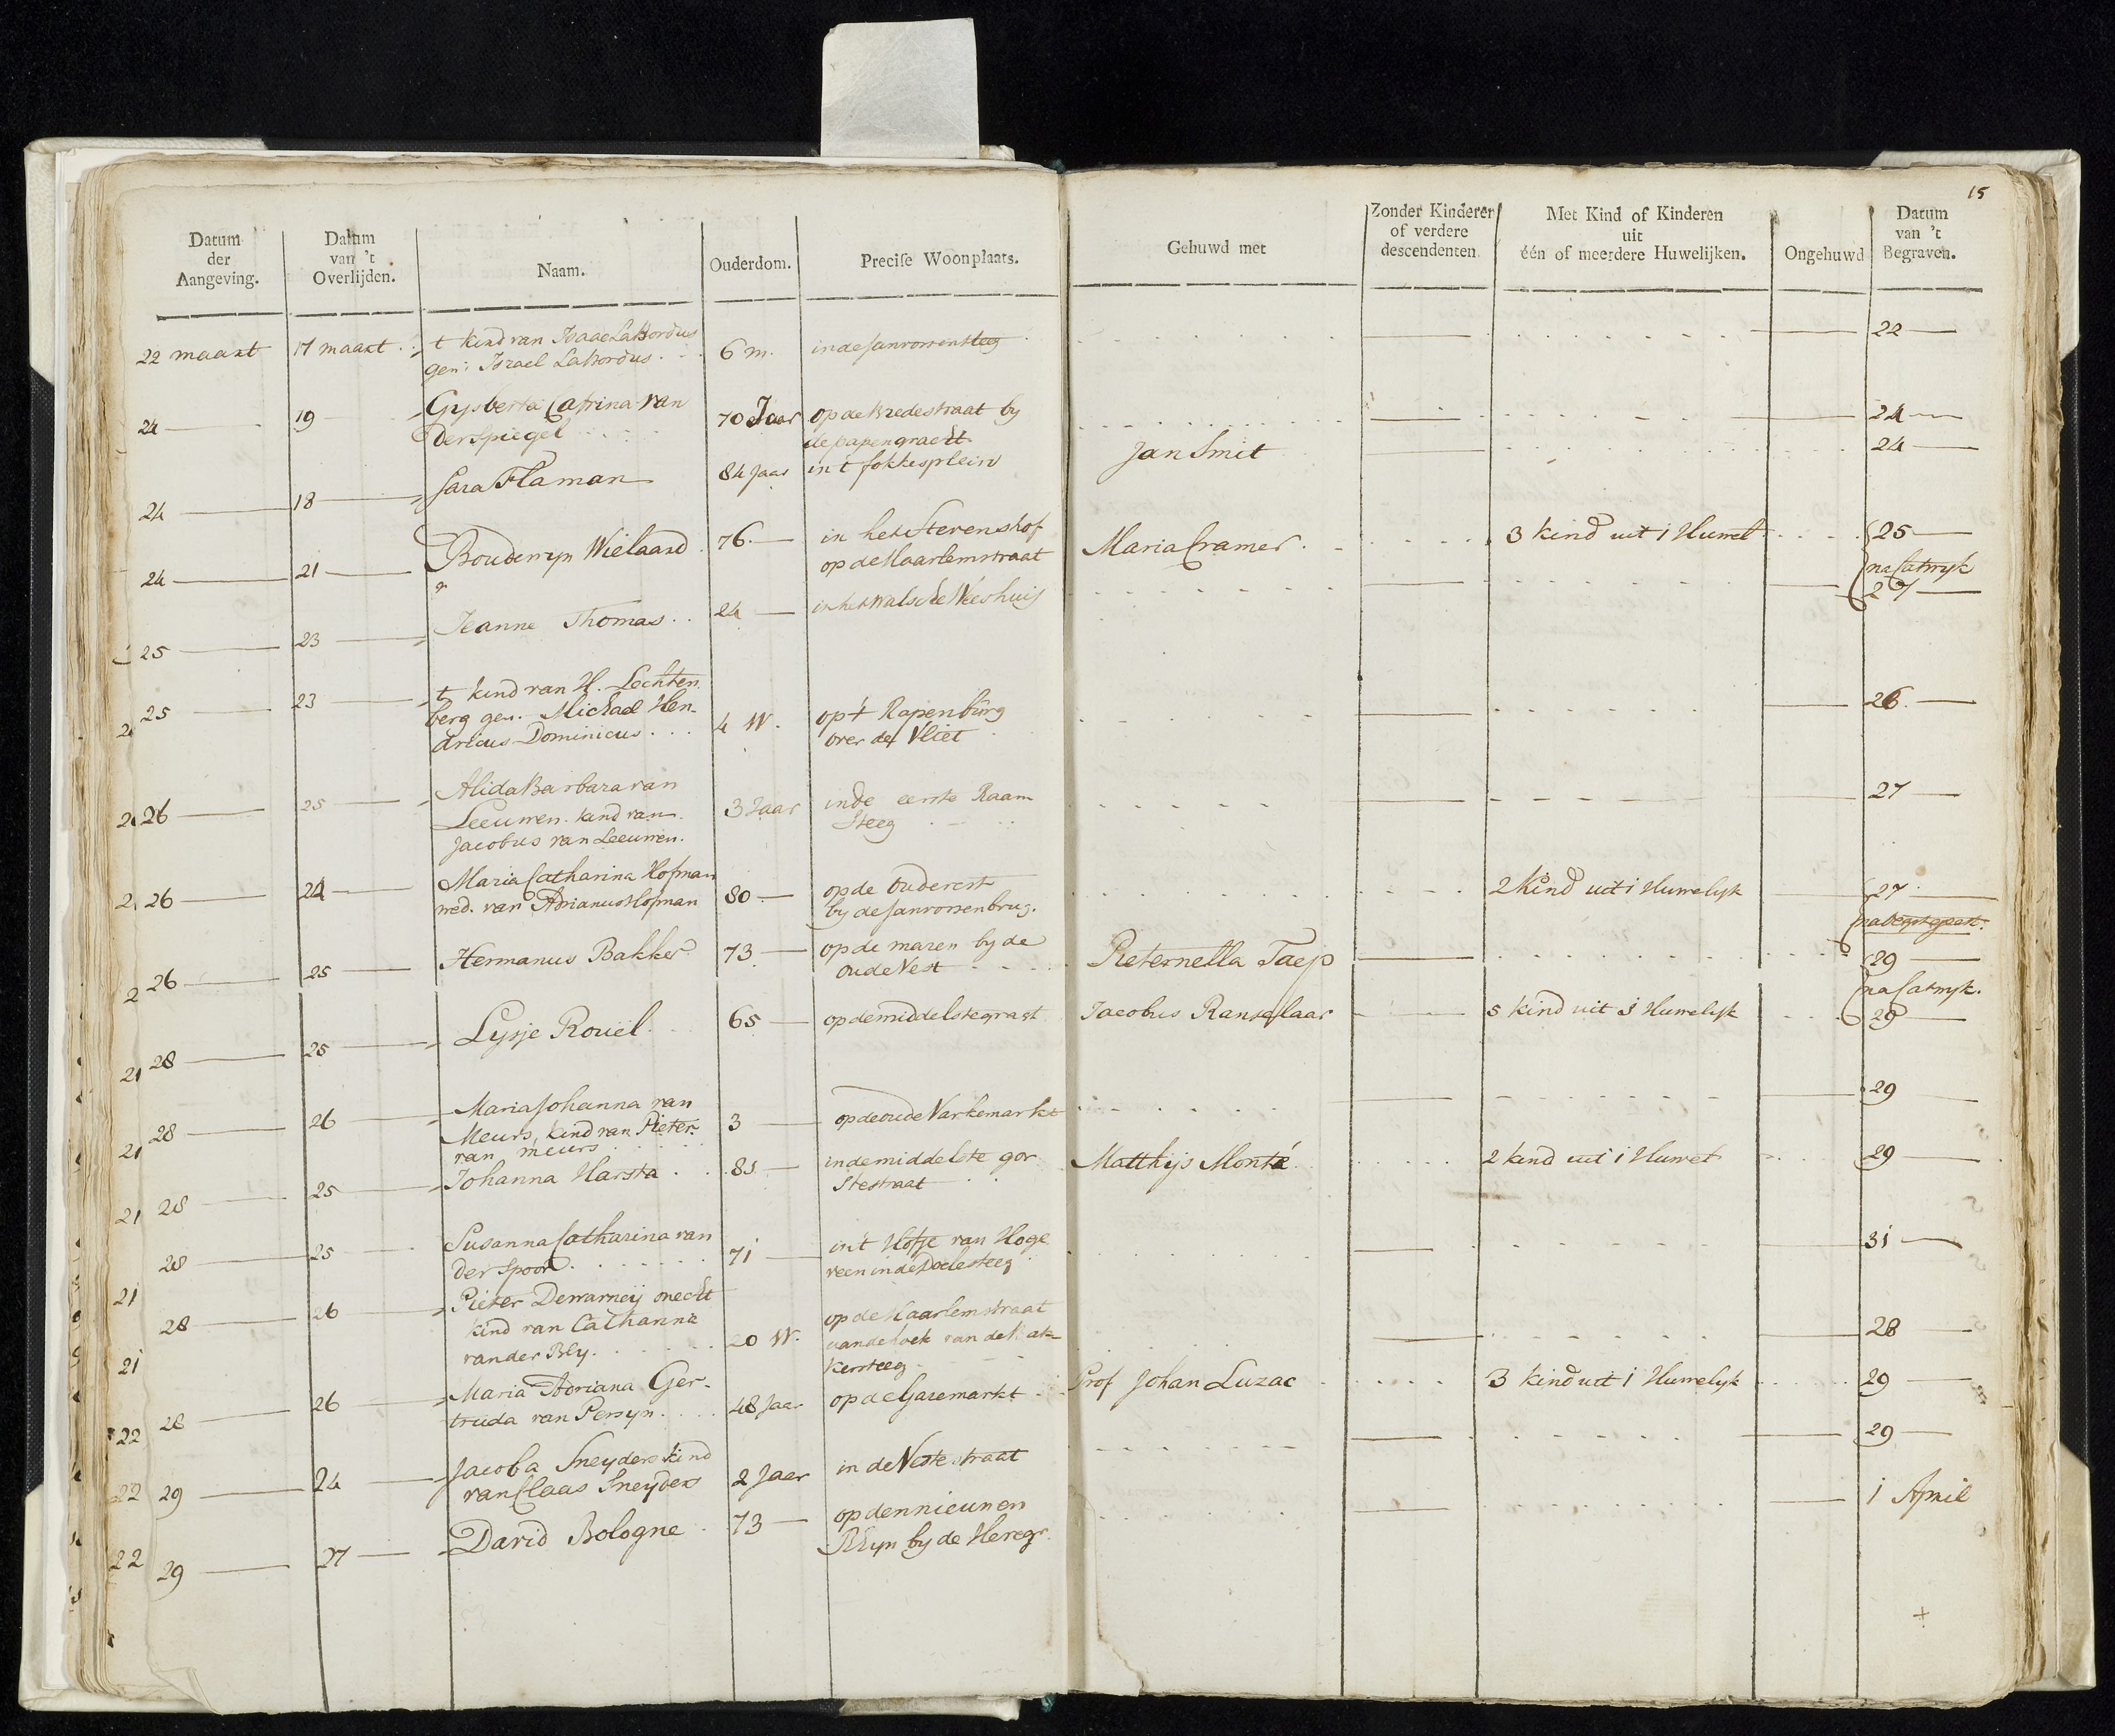 15
Datum der Aangeving.
Datum van 't Overlijden.
Naam.
Ouderdom.
Precise Woonplaats.
Gehuwd met
Zonder Kinderen of verdere descendenten
Met Kind of Kinderen uit één of meerdere Huwelijken.
Ongehuwd
Datum van 't Begraven.
22 maart 17 maart t kind van Isaac LaBordus 6 m. in de Janvossensteeg 22
gen: Israel LaBordus
24 19 Gysberta Catrina van 70 Jaar op de Bredestraat by 24
der Spiegel de papengracht
24 18 Sara Flaman 84 Jaar in t fokkesplein Jan Smit 24
24 21 Boudewyn Wielaard 76 in het Stevenshof Maria Cramer 3 kind uit 1 Huwel 25
op de Haarlemstraat na Catwyk
25 23 Jeanne Thomas 24 in het Walsche Weeshuis 27
25 23 t kind van H. Lechten
berg gen. Michael Hen- 4 W. op t Rapenburg 26
dricus Dominicus over de Vliet
26 25 Alida Barbara van 3 Jaar in de eerste Raam 27
Leeuwen kind van Steeg
Jacobus van Leeuwen.
26 24 Maria Catharina Hofman 80 op de Oudevest 2 Kind uit 1 Huwelyk 27
wed. van Adrianus Hofman by de Janvossenbrug.
26 25 Hermanus Bakker 73 op de maren by de Pieternella Taep 29
Oude Vest na Catwyk.
28 25 Lysje Rouel 65 op de middelstegragt Jacobus Ranselaar 5 kind uit 3 Huwelyk 29
28 26 Maria Johanna van 3 op de oude Varkemarkt 29
Meurs, kind van Pieter
van meurs
28 25 Johanna Harsta 81 in de middelste gor Matthijs Monté 2 kind uit 1 Huwel 29
Stestraat
28 25 Susanna Catharina van 71 in t Hofje van Hoge 31
der Spoor veen in de Doelesteeg
28 26 Pieter Dewarneij onecht op de Haarlemstraat
kind van Catharina 20 W. aan de hoek van de Bak 28
van der Bly. kersteeg
28 26 Maria Adriana Ger- 48 Jaar op de Garemarkt Prof Johan Luzac 3 kind uit 1 Huwelyk 29
truida van Persyn
29 24 Jacoba Sneyders kind 2 Jaar in de Veste straat 29
van Claas Sneyders
29 27 David Bologne 73 op den nieuwen 1 April
Rhyn by de Heregr.